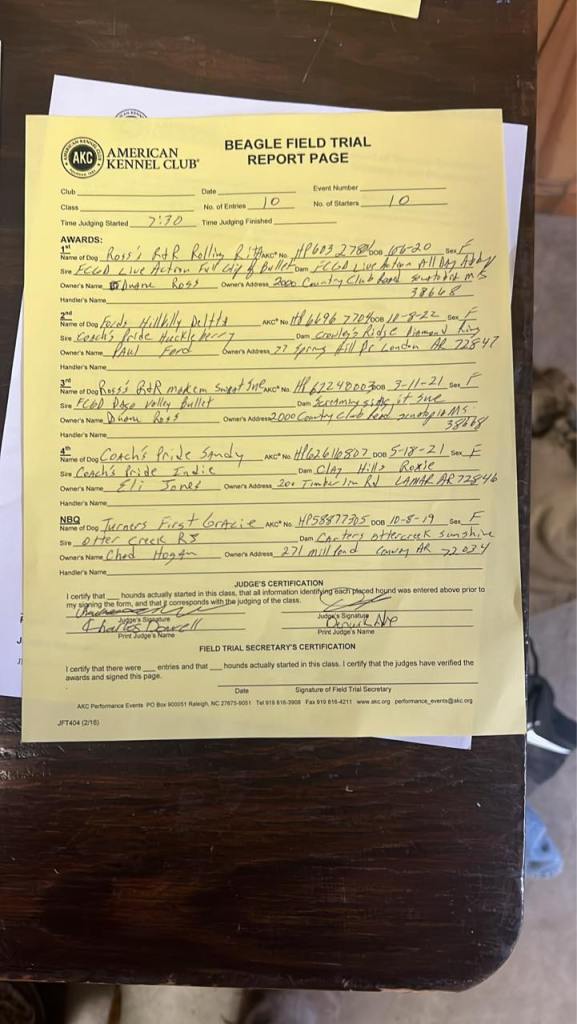 AMERICAN KENNEL CLUB
AKC
AMERICAN
KENNEL CLUB®
BEAGLE FIELD TRIAL
REPORT PAGE
Club Date Event Number
Class No. of Entries 10 No. of Starters 10
Time Judging Started 7:30 Time Judging Finished
AWARDS:
1st
Name of Dog Ross's R&R Rolling AKC® No. DOB Sex F
Sire FCGD Live Action Full Bullet Dam FCGD Live Action All Day
Owner's Name Duane Ross Owner's Address 2000 Country Club Road MS
38668
Handler's Name
2nd
Name of Dog Fords Hillbilly Delta AKC® No. DOB 10-8-22 Sex F
Sire Coach's Pride Huckleberry Dam Crowley's Ridge Diamond Ring
Owner's Name PAul Ford Owner's Address 27 Spring Hill Dr London AR 72847
Handler's Name
3rd
Name of Dog Ross's R&R AKC® No. DOB 3-11-21 Sex F
Sire FCGD Valley Bullet Dam it Sue
Owner's Name Duane Ross Owner's Address 2000 Country Club Road MS
38668
Handler's Name
4th
Name of Dog Coach's Pride Sandy AKC® No. HP62616807 DOB 5-18-21 Sex F
Sire Coach's Pride Indie Dam Clay Hills Roxie
Owner's Name Eli Jones Owner's Address Rd LAMAR AR 72846
Handler's Name
NBQ
Name of Dog Turners First Gracie AKC® No. HP58877305 DOB 10-8-19 Sex F
Sire otter creek RJ Dam ottercreek sunshine
Owner's Name Chad Hogan Owner's Address 271 Conway AR 72034
Handler's Name
JUDGE'S CERTIFICATION
I certify that ___ hounds actually started in this class, that all information identifying each placed hound was entered above prior to
my signing the form, and that it corresponds with the judging of the class.
Judge's Signature Judge's Signature
Charles Dowell
Print Judge's Name Print Judge's Name
FIELD TRIAL SECRETARY'S CERTIFICATION
I certify that there were ___ entries and that ___ hounds actually started in this class. I certify that the judges have verified the
awards and signed this page.
Date Signature of Field Trial Secretary
AKC Performance Events PO Box 900051 Raleigh, NC 27675-9051 Tel 919 816-3908 Fax 919 816-4211 www.akc.org performance_events@akc.org
JFT404 (2/16)